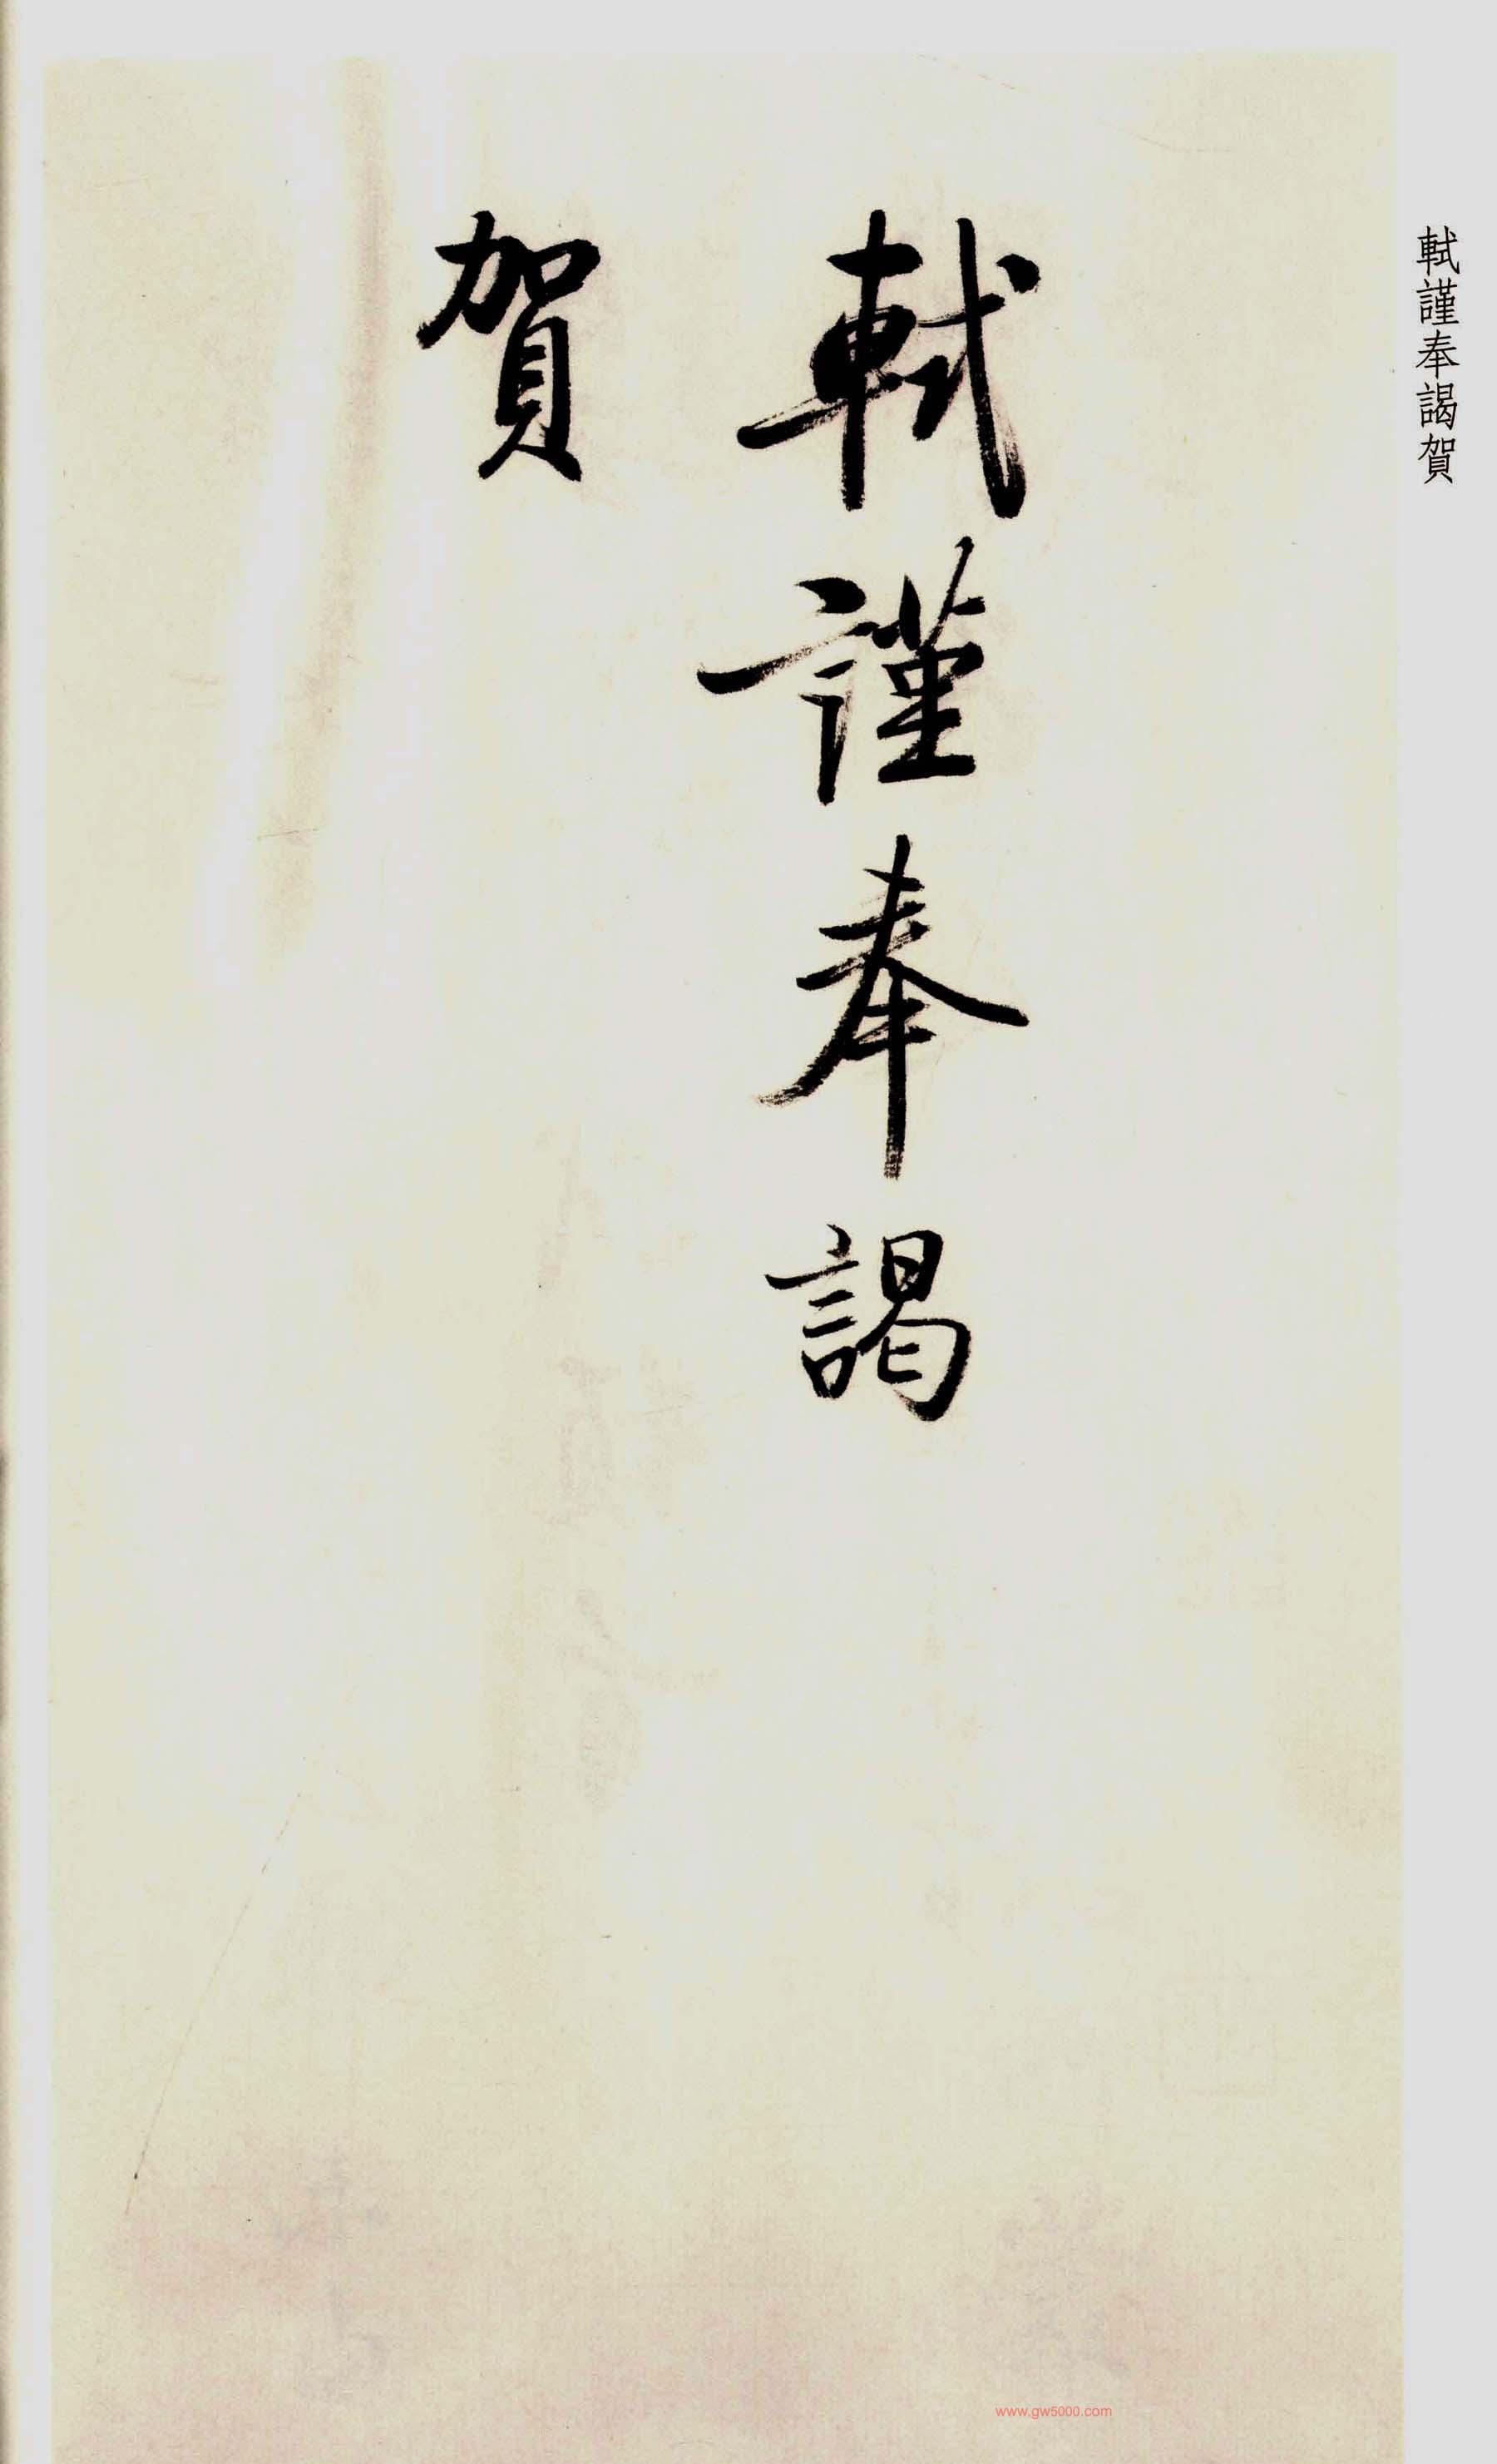 軾謹奉謁賀
軾謹奉謁
賀
www.gw5000.com